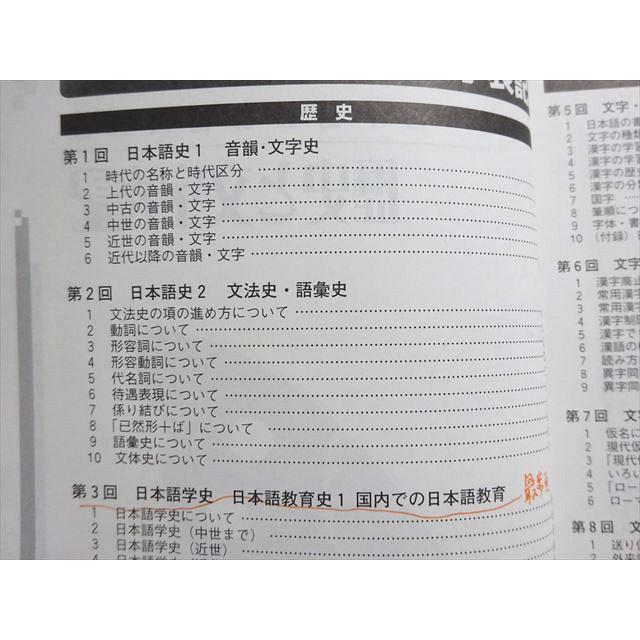 歴史
第1回 日本語史1 音韻・文字史
1 時代の名称と時代区分
2 上代の音韻・文字
3 中古の音韻・文字
4 中世の音韻・文字
5 近世の音韻・文字
6 近代以降の音韻・文字
第2回 日本語史2 文法史・語彙史
1 文法史の項の進め方について
2 動詞について
3 形容詞について
4 形容動詞について
5 代名詞について
6 待遇表現について
7 係り結びについて
8 「已然形+ば」について
9 語彙史について
10 文体史について
第3回 日本語学史 日本語教育史1 国内での日本語教育
1 日本語学史について
2 日本語学史(中世まで)
3 日本語学史(近世)
第5回 文字・
1 日本語の書
2 文字の種類
3 漢字の学習
4 漢字の学習
5 漢字の歴史
6 漢字の分
7 国字
8 筆順につ
9 字体・書
10 (付録)
第6回 文字
1 漢字廃止
2 常用漢字
3 常用漢字
4 漢字制限
5 漢字で
6 漢語の
7 読み方
8 異字同
9 異字同
第7回 文
1 仮名に
2 現代仮
3 「現代
4 いろい
5 「ロー
6 ロー
第8回 文
1 送り仮
2 外来語